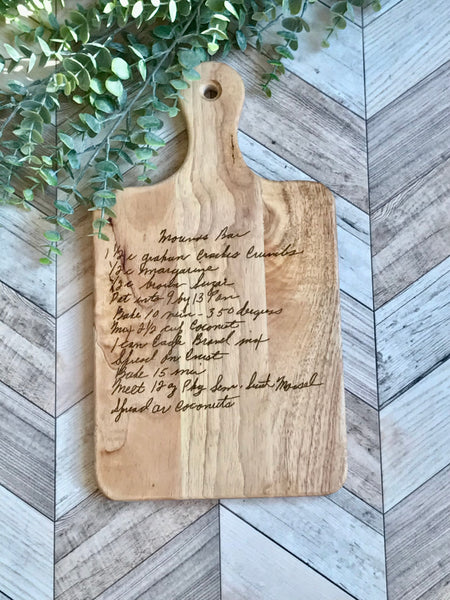 Mounds Bar
1 1/2 c graham Crackes Crumbs
1/2 c margarine
1/3 c brown Sugar
Pat into 9 by 13 Pan
Bake 10 min - 350 degrees
Mix 2/3 cup Coconut
1 can Eagle Brand mix
Spread on Crust
Bake 15 min
Meet 12 oz Pkg Semi-
Spread on Coconuts